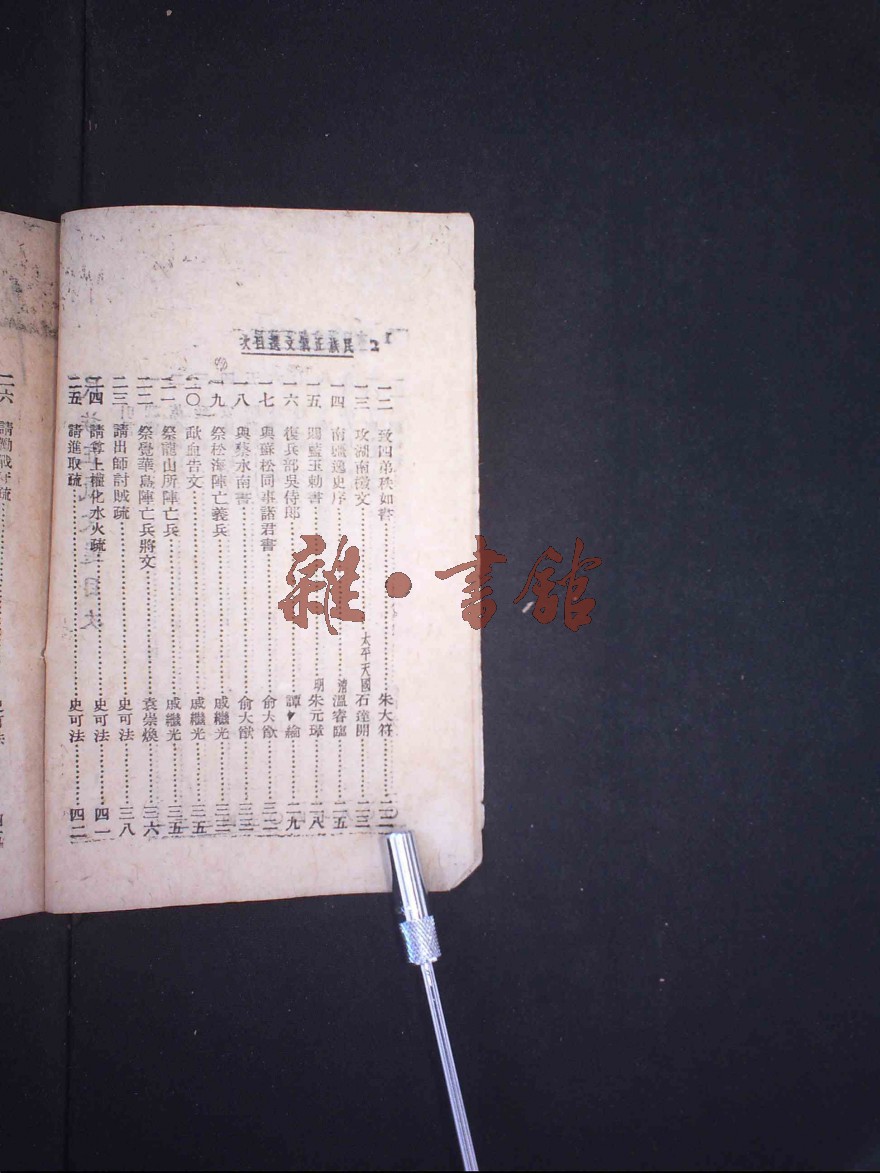 2 民族正氣文選目次
一二 致四弟秩如書 朱大符 二二
一三 攻湖南檄文 太平天國 石達開 二三
一四 南疆逸史序 清 溫睿臨 二五
一五 閱藍玉勅書 明 朱元璋 二八
一六 復兵部吳侍郎 譚 綸 二九
一七 與蘇松同事諸君書 俞大猷 三二
一八 與蔡水南書 俞大猷 三三
一九 祭松海陣亡義兵 戚繼光 三三
二〇 歃血告文 戚繼光 三五
二一 祭龍山所陣亡兵 戚繼光 三五
二二 祭覺華島陣亡兵將文 袁崇煥 三六
二三 請出師討賊疏 史可法 三八
二四 請尊上權化水火疏 史可法 四一
二五 請進取疏 史可法 四二
二六 請 疏 史可法
雜·書館